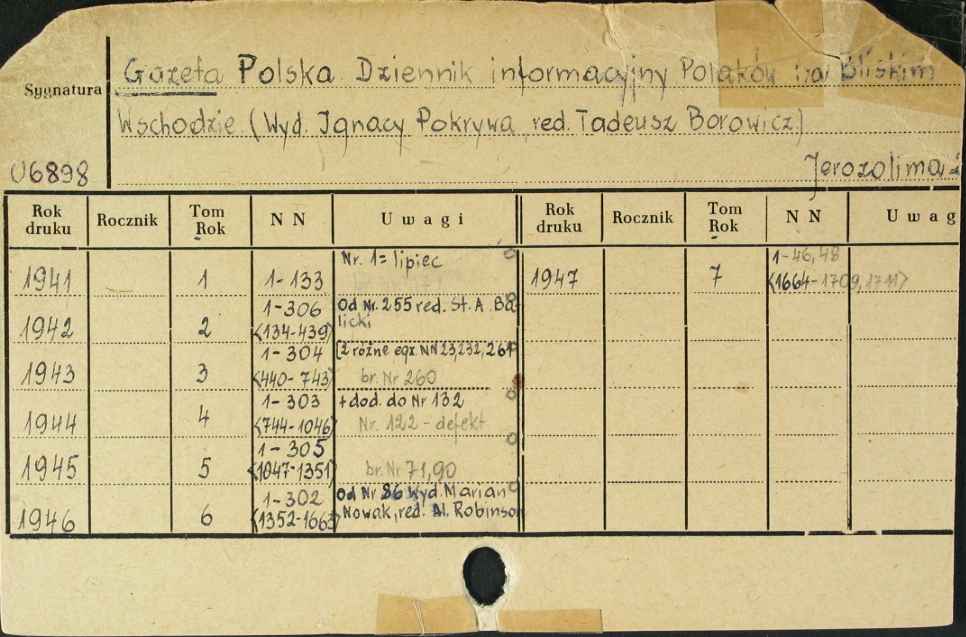 Gazeta Polska Dziennik informacyjny Polaków na Bliskim
Sygnatura
Wschodzie (Wyd. Ignacy Pokrywa, red. Tadeusz Borowicz)
06898
Jerozolima
Rok druku Rocznik Tom Rok N N Uwagi Rok druku Rocznik Tom Rok N N Uwag
1941 1 1-133 Nr. 1 = lipiec 1947 7 1-46,48 <1664-1709,1711>
1942 2 1-306 <134-439) Od Nr. 255 red. St. A. Balicki
1943 3 1-304 <440-743) [2 różne egz. NN 23,232,261 br. Nr 260
1944 4 1-303 <744-1046) + dod. do Nr 132 Nr. 122 - defekt
1945 5 1-305 <1047-1351) br. Nr 71,90
1946 6 1-302 <1352-1663) Od Nr 86 Wyd. Marian Nowak, red. Al. Robinson